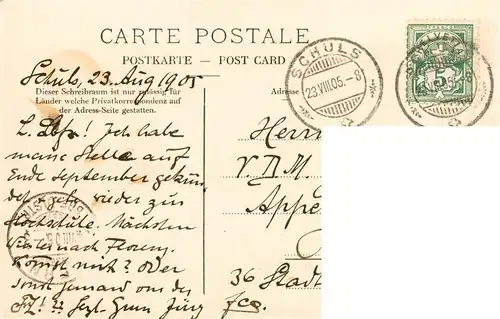 CARTE POSTALE
POSTKARTE — POST CARD
Schuls, 23 Aug 1905
Dieser Schreibraum ist nur zulässig für
Länder welche Privatkorrespondenz auf
der Adress-Seite gestatten.
Adresse
SCHULS
23.VIII.05.-8
HELVETIA
5
L. Ich habe
meine Stelle auf
Ende September gekün
det, gehe wieder zur
Hochschule. Nächsten
nach Florenz.
Kommst mit? Oder
sonst jemand aus der
Herrn
V. D. M.
Appe
36 Stadt